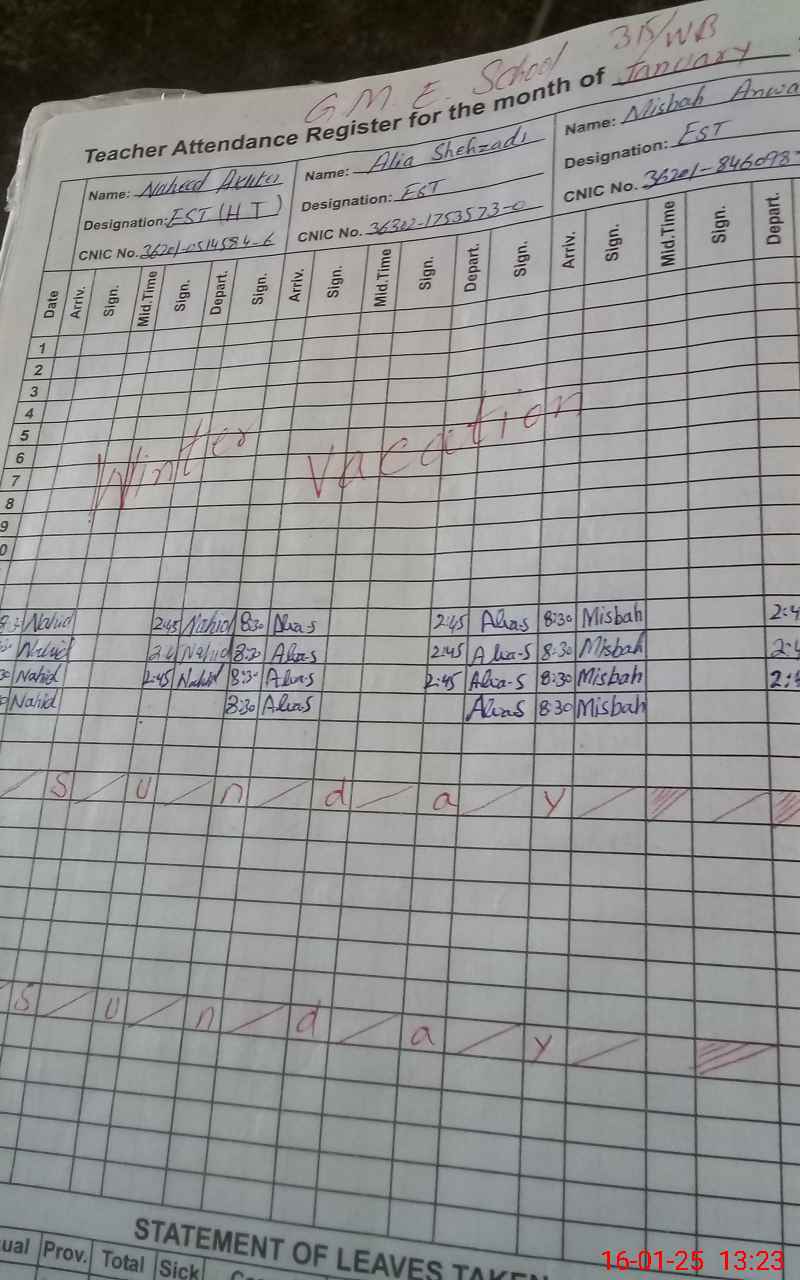 G.M.E. School 315/WB
Teacher Attendance Register for the month of January
Name: Naheed Akhter Name: Alia Shehzadi Name: Misbah Anwa
Designation: EST (H T) Designation: EST Designation: EST
CNIC No. 36201-0514584-6 CNIC No. 36302-1753573-0 CNIC No. 36201-846098
Date Arriv. Sign. Mid.Time Sign. Depart. Sign. Arriv. Sign. Mid.Time Sign. Depart. Sign. Arriv. Sign. Mid.Time Sign. Depart.
1
2
3
4
5
6
7
8
9
0
Winter Vacation
Nahid 2:45 Nahid 8:30 Alia-S 2:45 Alia-S 8:30 Misbah 2:4
Nahid 2:4 Nahid 8:30 Alia-S 2:45 Alia-S 8:30 Misbah 2:4
Nahid 2:45 Nahid 8:30 Alia-S 2:45 Alia-S 8:30 Misbah 2:4
Nahid 8:30 Alia-S Alia-S 8:30 Misbah
S u n d a y
S u n d a y
STATEMENT OF LEAVES TAKEN
ual Prov. Total Sick
16-01-25 13:23